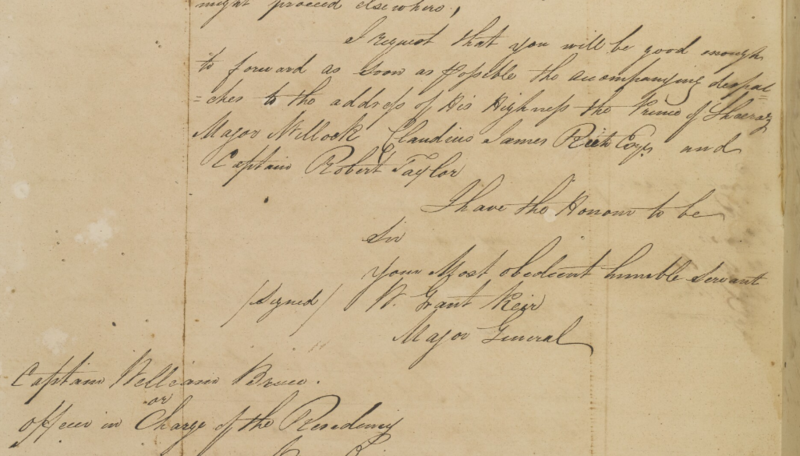 might proceed elsewhere,
I request that you will be good enough
to forward as soon as possible the accompanying despat
=ches to the address of His Highness the Prince of Sheeraz
Major Willock Claudius James Rich Esqr. and
Captain Robert Taylor
I have the Honour to be
Sir
Your Most obedient humble Servant
/Signed/ W. Grant Keir
Major General
Captain William Bruce.
or
officer in Charge of the Residency